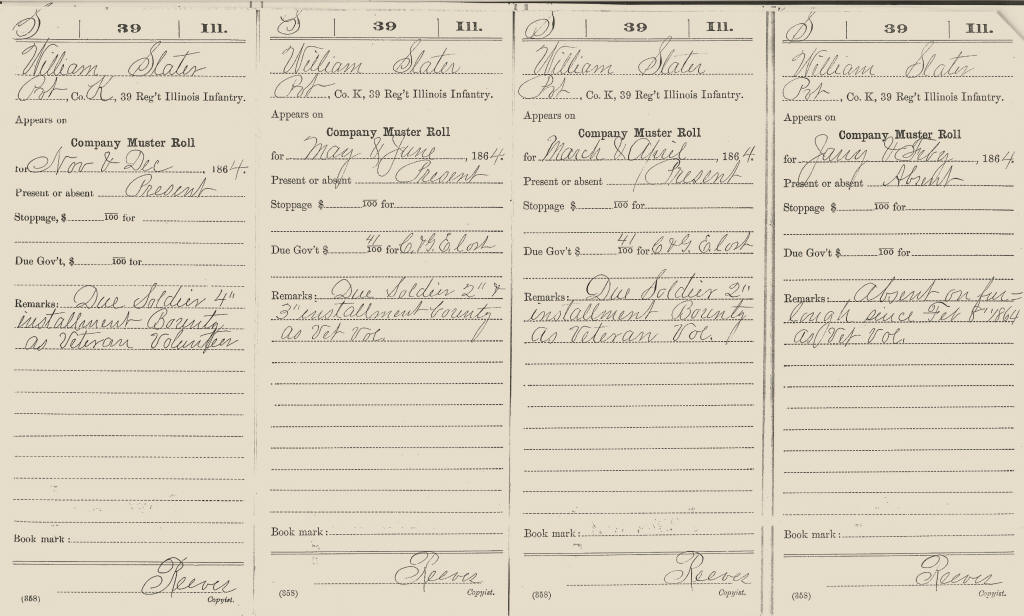 S | 39 | Ill.
William Slater
Pvt, Co. K, 39 Reg't Illinois Infantry.
Appears on
Company Muster Roll
for Nov & Dec, 1864.
Present or absent Present
Stoppage, $ 100 for
Due Gov't, $ 100 for
Remarks: Due Soldier 4"
installment Bounty
as Veteran Volunteer
Book mark:
Reeves
(358) Copyist.
S | 39 | Ill.
William Slater
Pvt, Co. K, 39 Reg't Illinois Infantry.
Appears on
Company Muster Roll
for May & June, 1864.
Present or absent Present
Stoppage $ 100 for
Due Gov't $ 41/100 for C. & G. E. lost
Remarks: Due Soldier 2" &
3" installment bounty
as Vet Vol.
Book mark:
Reeves
(358) Copyist.
S | 39 | Ill.
William Slater
Pvt, Co. K, 39 Reg't Illinois Infantry.
Appears on
Company Muster Roll
for March & April, 1864.
Present or absent Present
Stoppage $ 100 for
Due Gov't $ 41/100 for C & G. E. lost
Remarks: Due Soldier 2"
installment Bounty
as Veteran Vol.
Book mark:
Reeves
(358) Copyist.
S | 39 | Ill.
William Slater
Pvt, Co. K, 39 Reg't Illinois Infantry.
Appears on
Company Muster Roll
for Jany & Feby, 1864.
Present or absent Absent
Stoppage $ 100 for
Due Gov't $ 100 for
Remarks: Absent on fur-
lough since Feb 8" 1864
as Vet Vol.
Book mark:
Reeves
(358) Copyist.